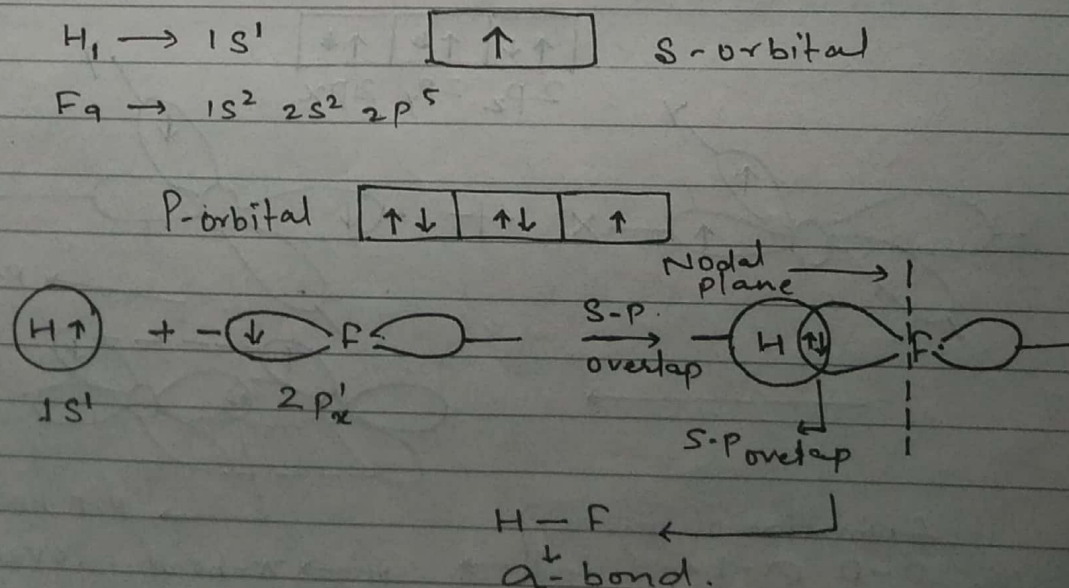 H₁ → 1S¹ ↑ S-orbital
F₉ → 1S² 2S² 2P⁵
P-orbital ↑↓ ↑↓ ↑
Nodal plane →
H↑ + - ↓ F S-P. overlap → H ↑↓ F
1S¹ 2P¹x
S-P overlap
H — F ←
↓
σ- bond.